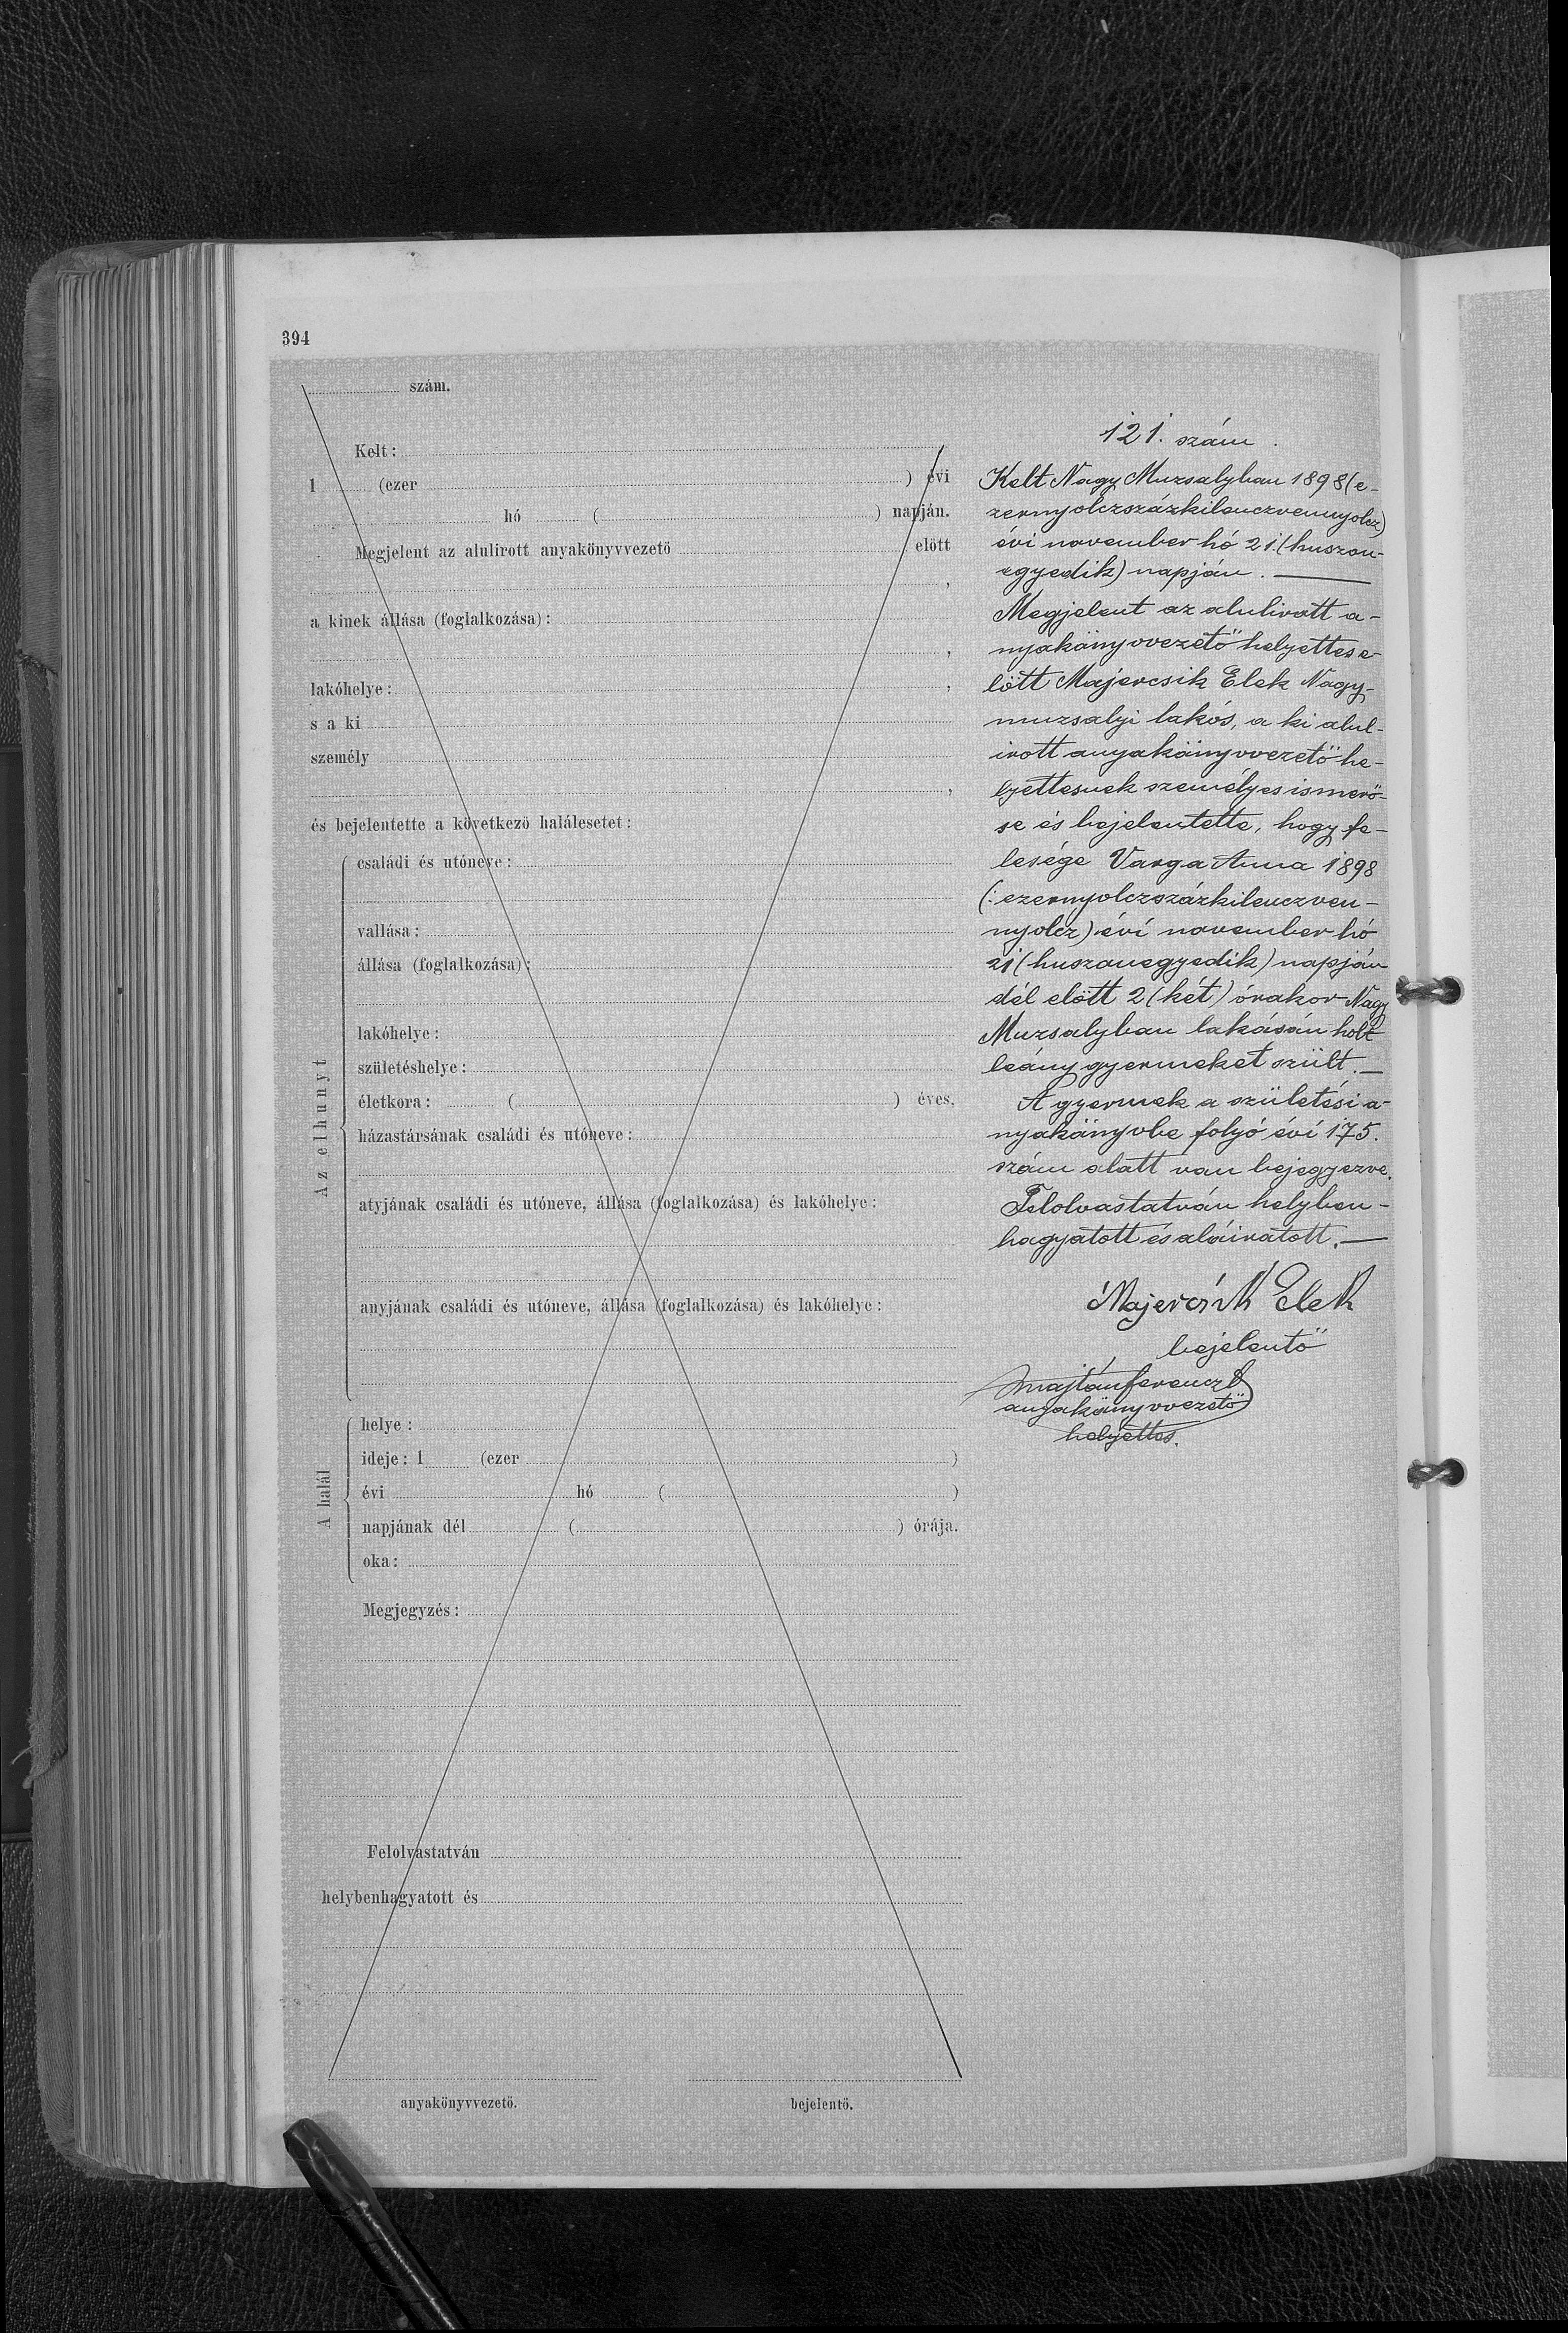 394
szám.
Kelt:
1 (ezer ) évi
hó ( ) napján.
Megjelent az alulirott anyakönyvvezető előtt
,
a kinek állása (foglalkozása):
,
lakóhelye: ,
s a ki
személy
,
és bejelentette a következő halálesetet:
Az elhunyt
családi és utóneve:
vallása:
állása (foglalkozása):
lakóhelye:
születéshelye:
életkora: ( ) éves,
házastársának családi és utóneve:
atyjának családi és utóneve, állása (foglalkozása) és lakóhelye:
anyjának családi és utóneve, állása (foglalkozása) és lakóhelye:
A halál
helye:
ideje: 1 (ezer )
évi hó ( )
napjának dél ( ) órája.
oka:
Megjegyzés:
Felolvastatván
helybenhagyatott és
anyakönyvvezető. bejelentő.
121. szám.
Kelt Nagy Muzsalyban 1898 (e-
zernyolczszázkilenczvennyolcz)
évi november hó 21. (huszon-
egyedik) napján. —
Megjelent az alulirott a-
nyakönyvvezető helyettes e-
lőtt Majercsik Elek Nagy-
muzsalyi lakós, a ki alul-
irott anyakönyvvezető he-
lyettesnek személyes ismerő-
se és bejelentette, hogy fe-
lesége Varga Anna 1898
(:ezernyolczszázkilenczven-
nyolcz) évi november hó
21 (huszonegyedik) napján
dél előtt 2 (két) órakor Nagy
Muzsalyban lakásán holt
leány gyermeket szült. —
A gyermek a születési a-
nyakönyvbe folyó évi 175.
szám alatt van bejegyezve.
Felolvastatván helyben-
hagyatott és aláiratott. —
Majercsik Elek
bejelentő
Majtán Ferencz
anyakönyvvezető
helyettes.